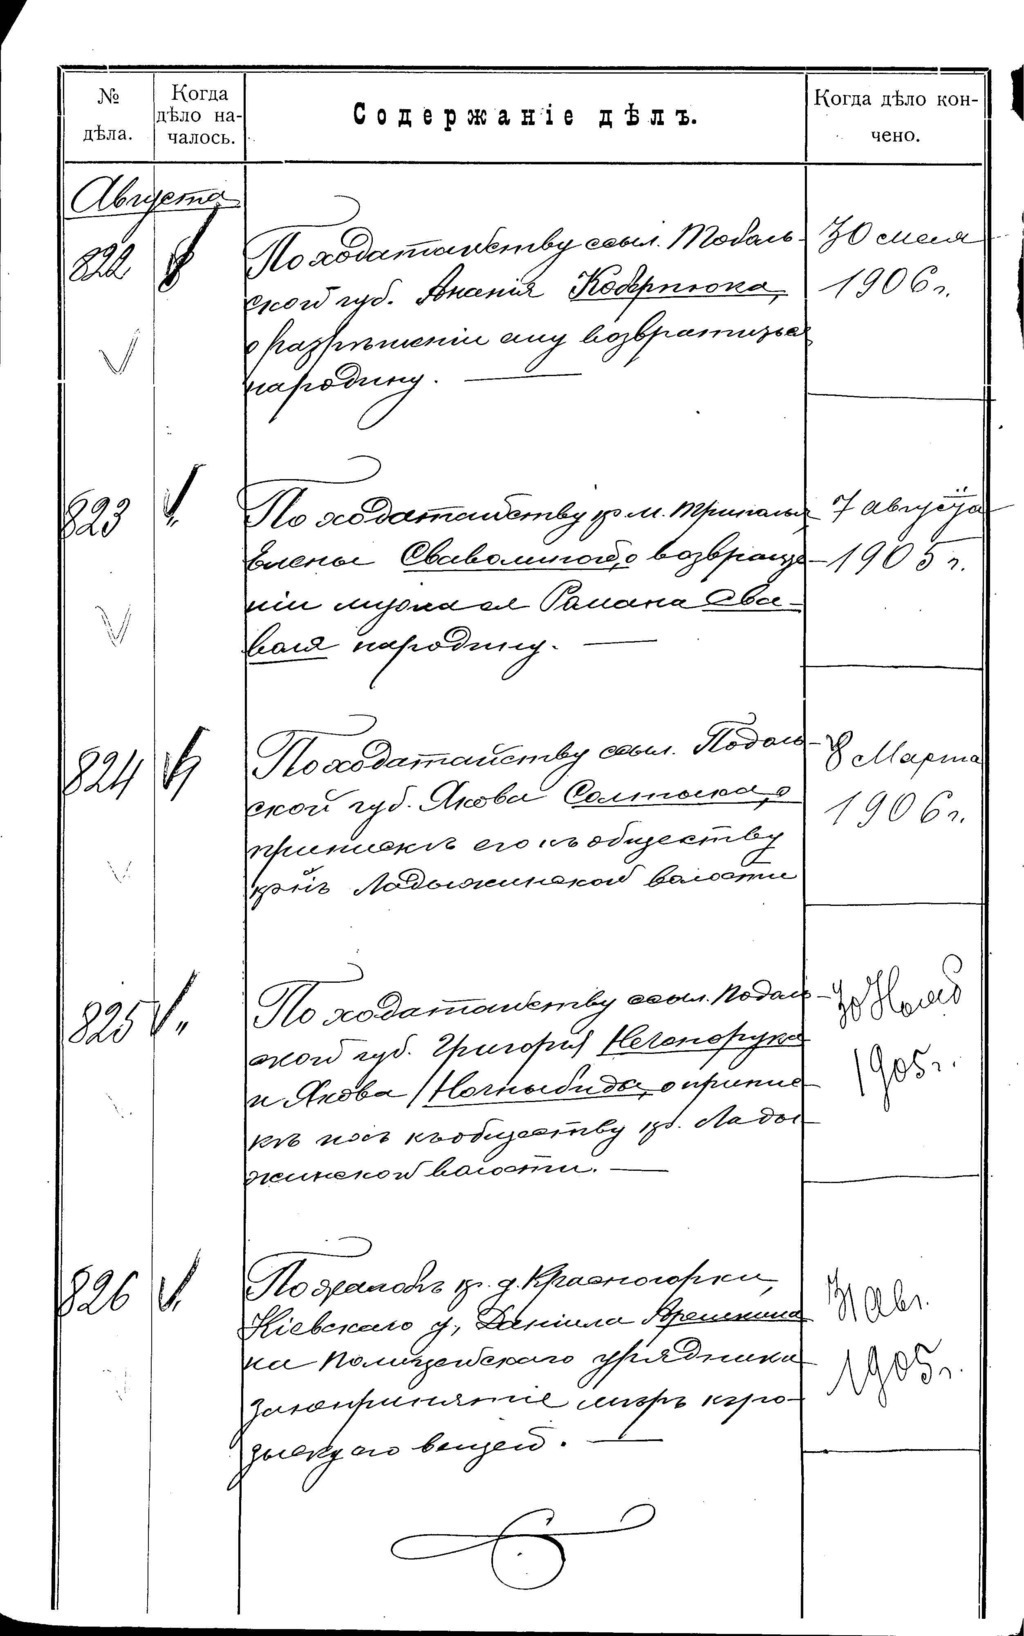 № дѣла.
Когда дѣло на-
чалось.
Содержаніе дѣлъ.
Когда дѣло кон-
чено.
Августа
822
По ходатайству ссыл. Тоболь-
ской губ. Ананія Коберпюка,
о разрѣшеніи ему возвратиться
народину.
30 мая
1906 г.
823
По ходатайству кр. м. Триполья
Елены Сваволиной, о возвраще-
ніи мужа ея Романа Сва-
воля народину.
7 августа
1905 г.
824
По ходатайству ссыл. Подоль-
ской губ. Якова Солтыка, о
припискѣ его къ обществу
кр-нъ Ладыжинской волости
8 Марта
1906 г.
825
По ходатайству ссыл. Подоль-
ской губ. Григорія Нечепорука
и Якова Ночныбида, о припис-
кѣ ихъ къ обществу кр. Лады-
жинской волости.
30 Нояб
1905 г.
826
По жалобѣ кр. д. Красногорки,
Кіевскаго у., Даніила
на Полицейскаго урядника
за непринятіе мѣръ къ ро-
зыску его вещей.
31 Авг.
1905 г.